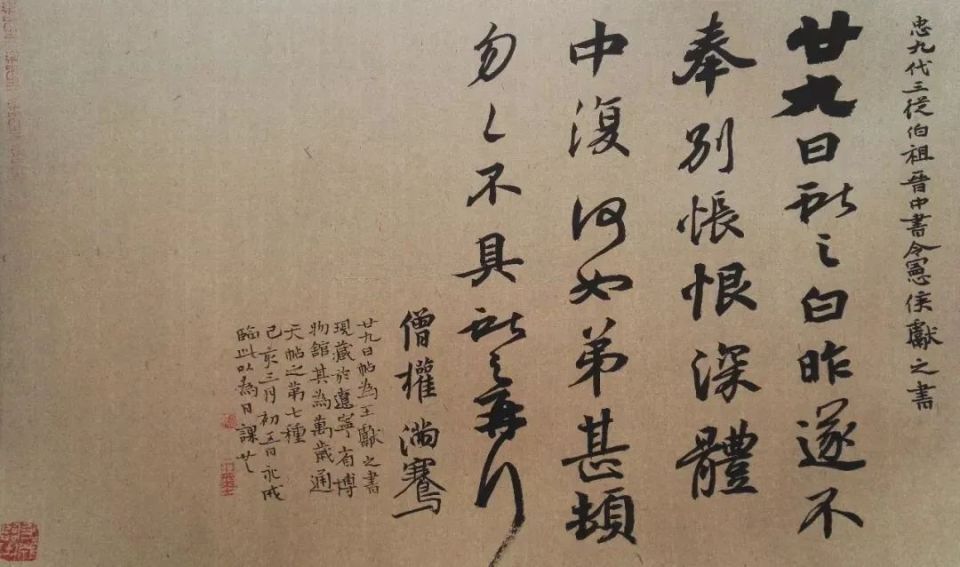 忠九代三從伯祖晉中書令憲侯獻之書
廿九日獻之白昨遂不
奉別悵恨深體
中復何如弟甚頓
勿〻不具獻之再拜
僧權 滿騫
廿九日帖為王獻之書
現藏於遼寧省博
物館其為萬歲通
天帖之第七種
己亥三月初 日永成
臨此以為日課也